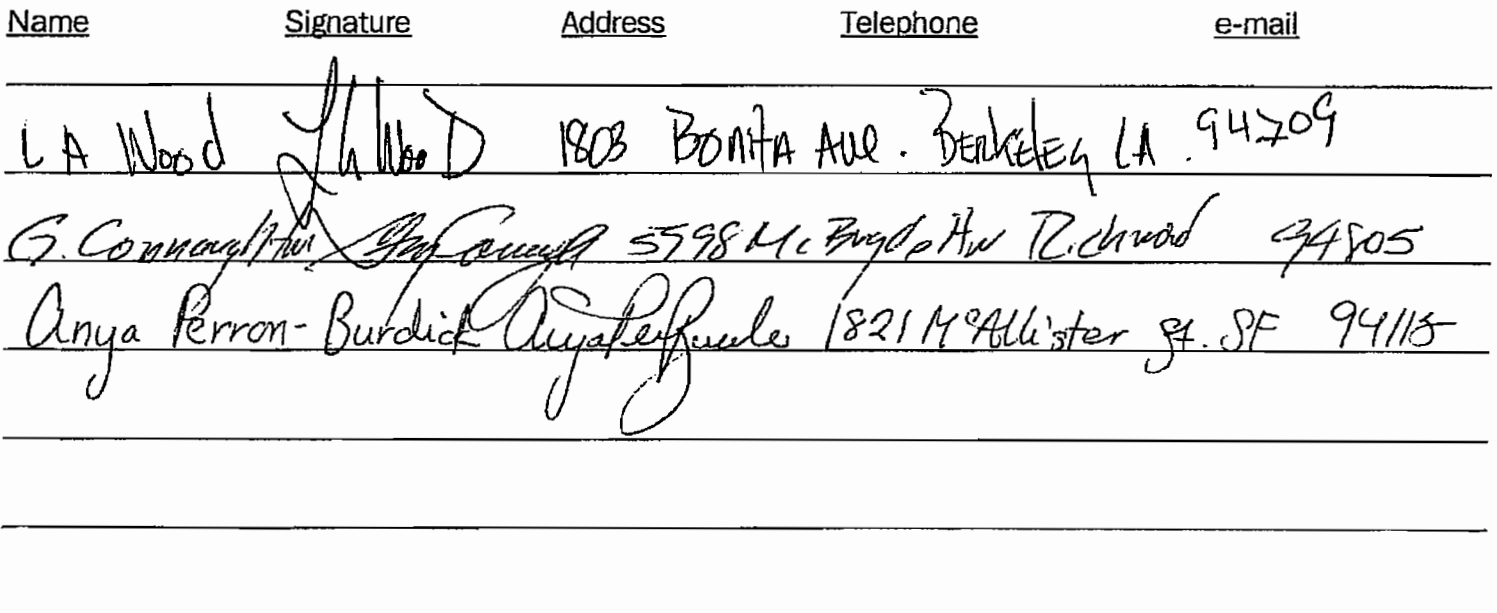 Name Signature Address Telephone e-mail
LA Wood LA Wood 1803 Bonita Ave. Berkeley CA. 94709
G. Connaughton 5598 Mc Bryde Richmond 94805
Anya Perron-Burdick 1821 McAllister St. SF 94115